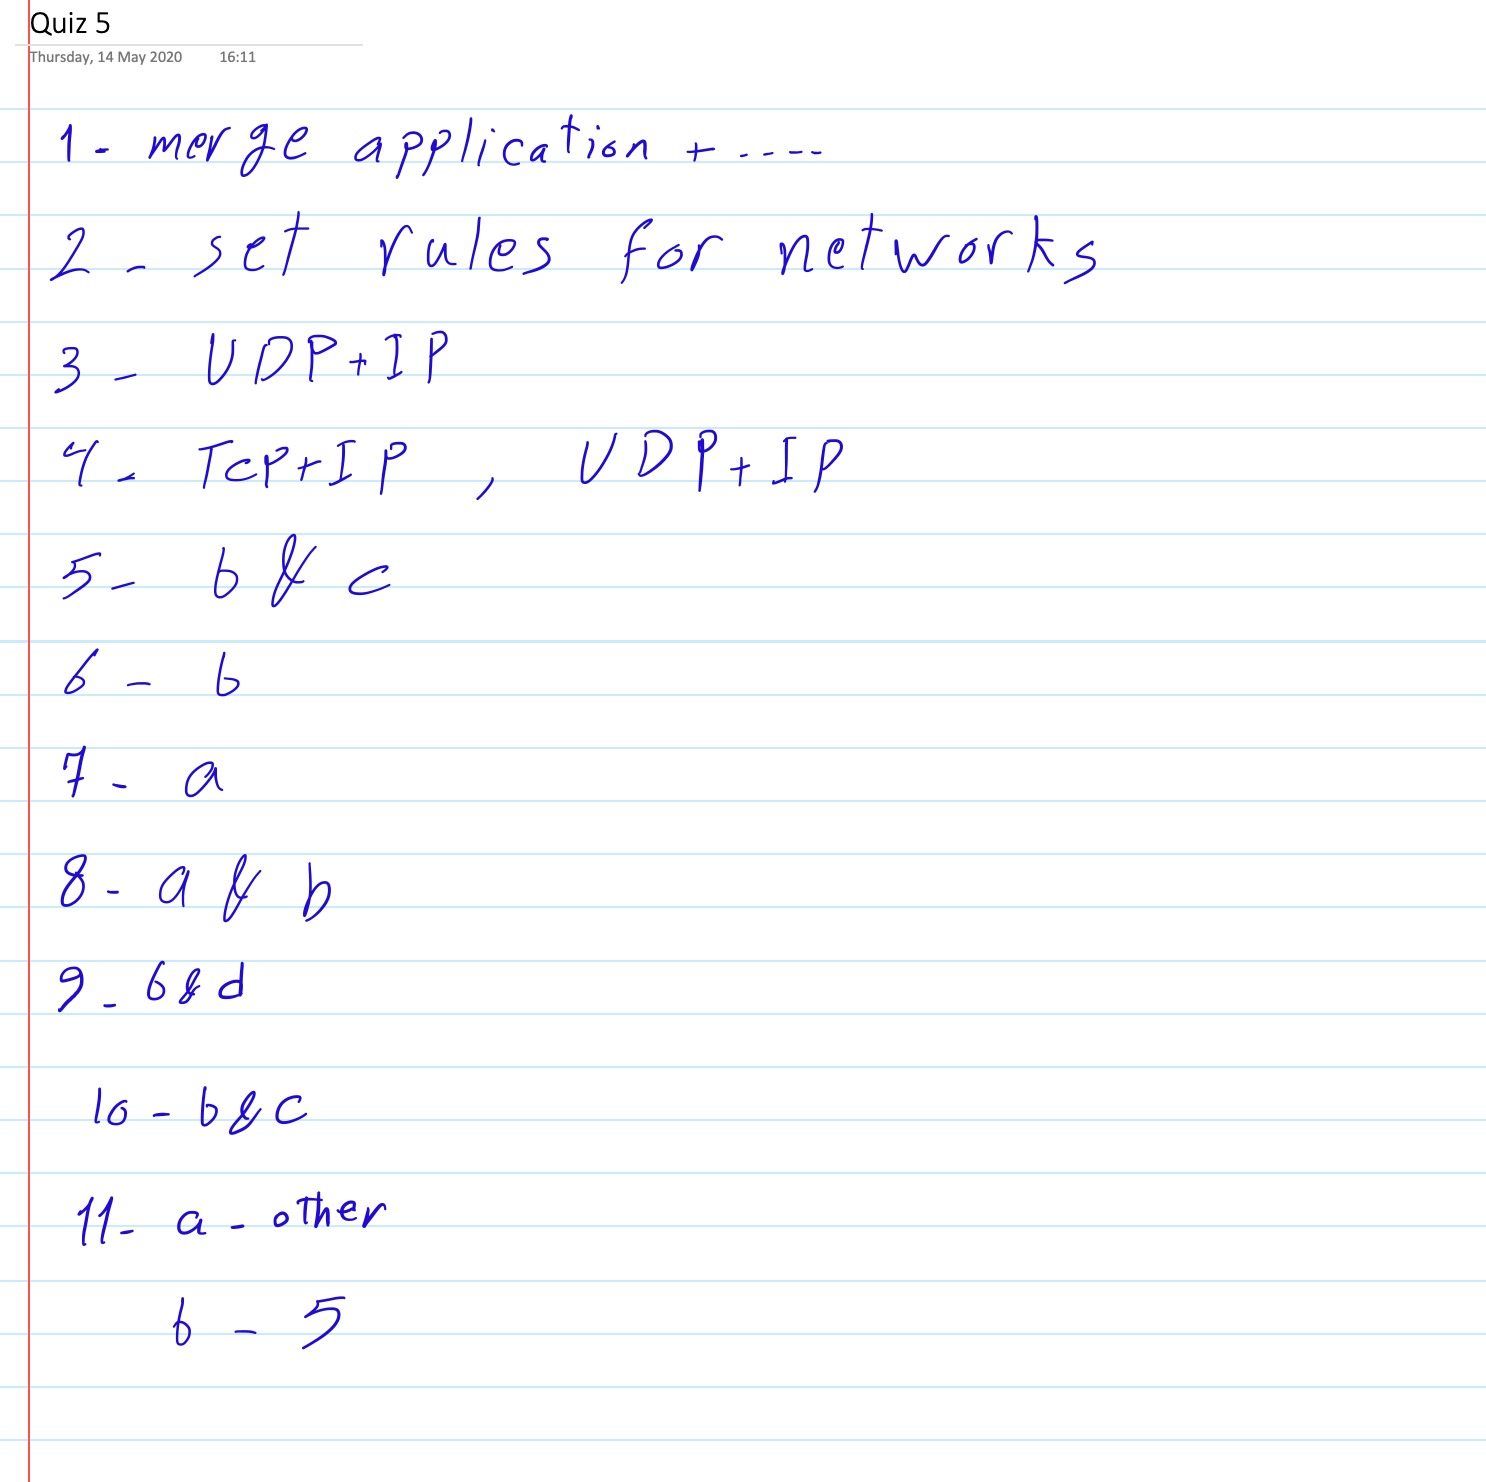 Quiz 5
Thursday, 14 May 2020 16:11
1- merge application + ....
2- set rules for networks
3- UDP+IP
4- TCP+IP , UDP+IP
5- b & c
6- b
7- a
8- a & b
9- b & d
10- b & c
11- a - other
b - 5